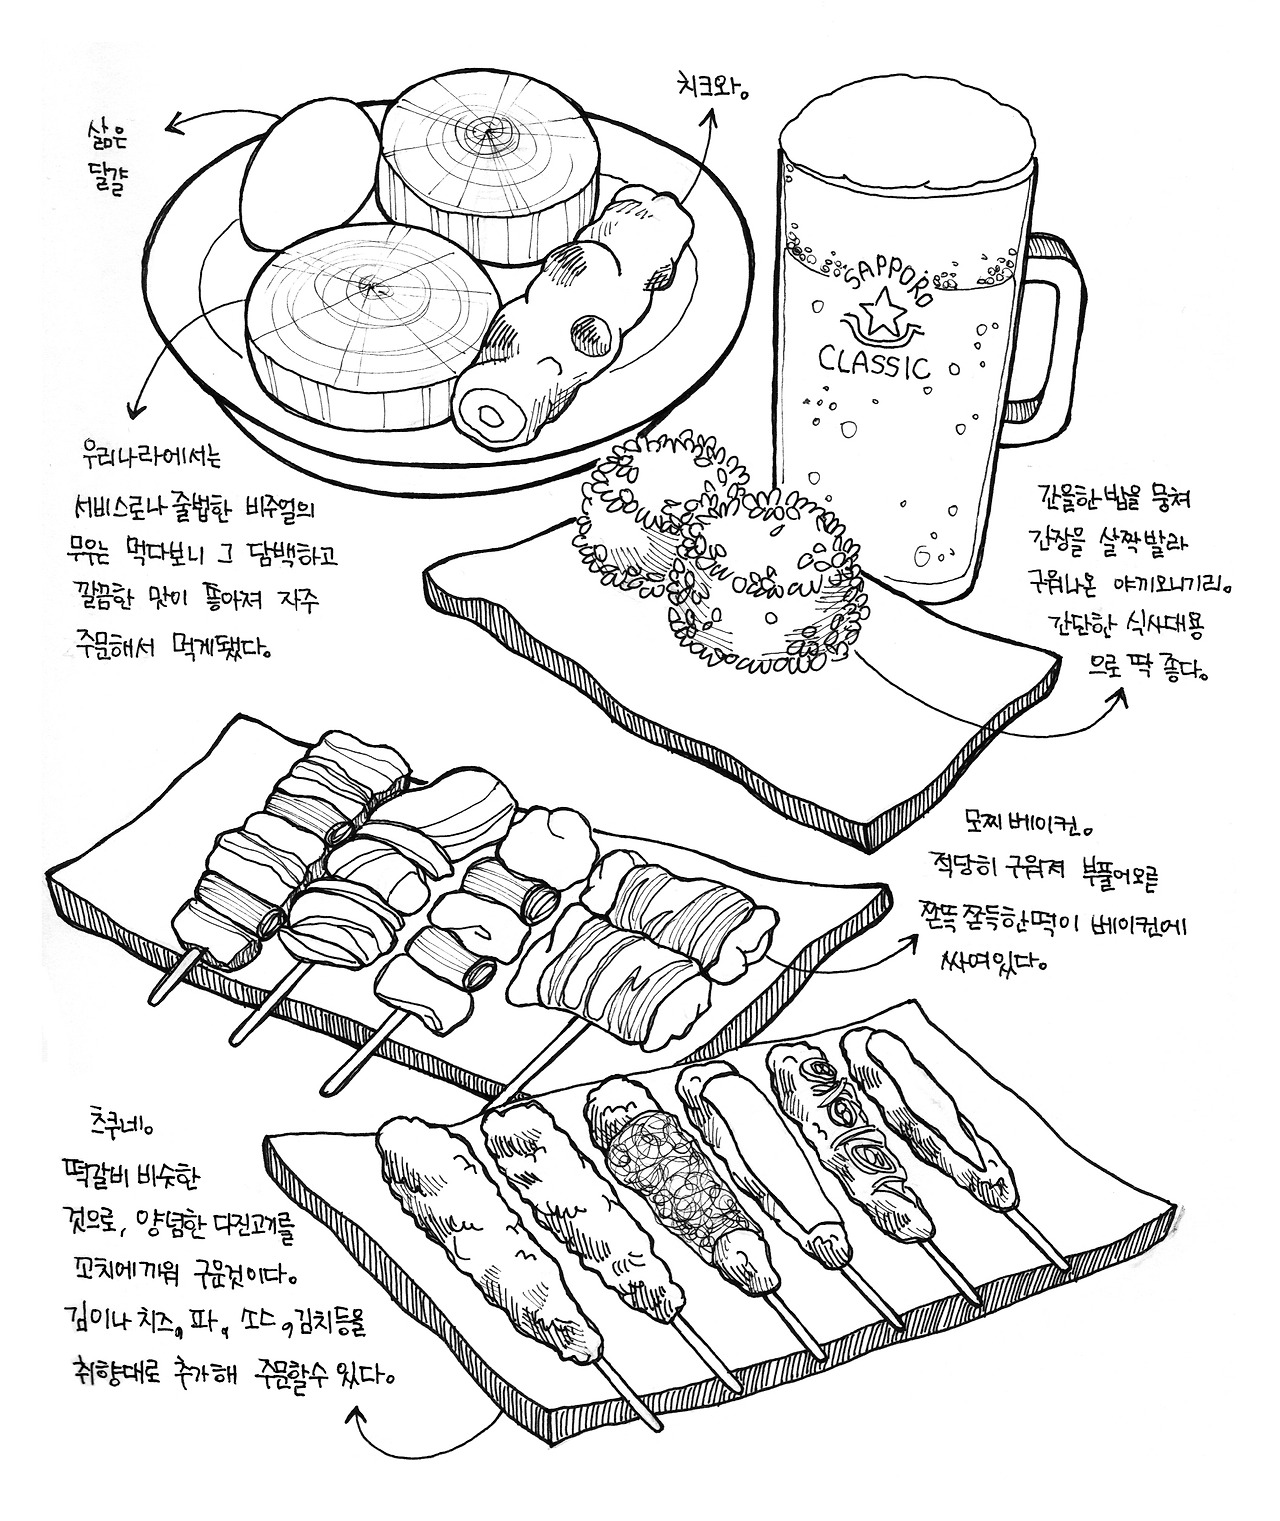 삶은
달걀
치크와.
SAPPORO
CLASSIC
우리나라에서는
서비스로나 줄법한 비주얼의
무우는 먹다보니 그 담백하고
깔끔한 맛이 좋아져 자주
주문해서 먹게됐다.
간을한 밥을 뭉쳐
간장을 살짝 발라
구워나온 야끼오니기리.
간단한 식사대용
으로 딱 좋다.
모찌 베이컨.
적당히 구워져 부풀어오른
쫀뜩쫀득한 떡이 베이컨에
싸여있다.
츠쿠네.
떡갈비 비슷한
것으로, 양념한 다진고기를
꼬치에 끼워 구운것이다.
김이나 치즈, 파, 소스, 김치등을
취향대로 추가해 주문할수 있다.